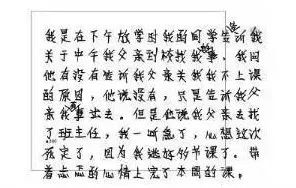 我是在下午放学时我的同学告诉我
关于中午我父亲到校找我事。我问
他有没有告诉我父亲关我不上课
的原因，他说没有，只是告诉我父
亲我出去。但是他说我父亲去找
了班主任，我一听急了，心想过次
死定了，因为我逃好多节课了。带
着忐忑的心情上完了本周的课。